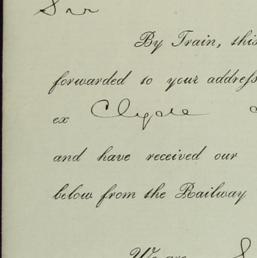 Sir
By Train, this
forwarded to your address
ex Clyde
and have received our
below from the Railway
We are